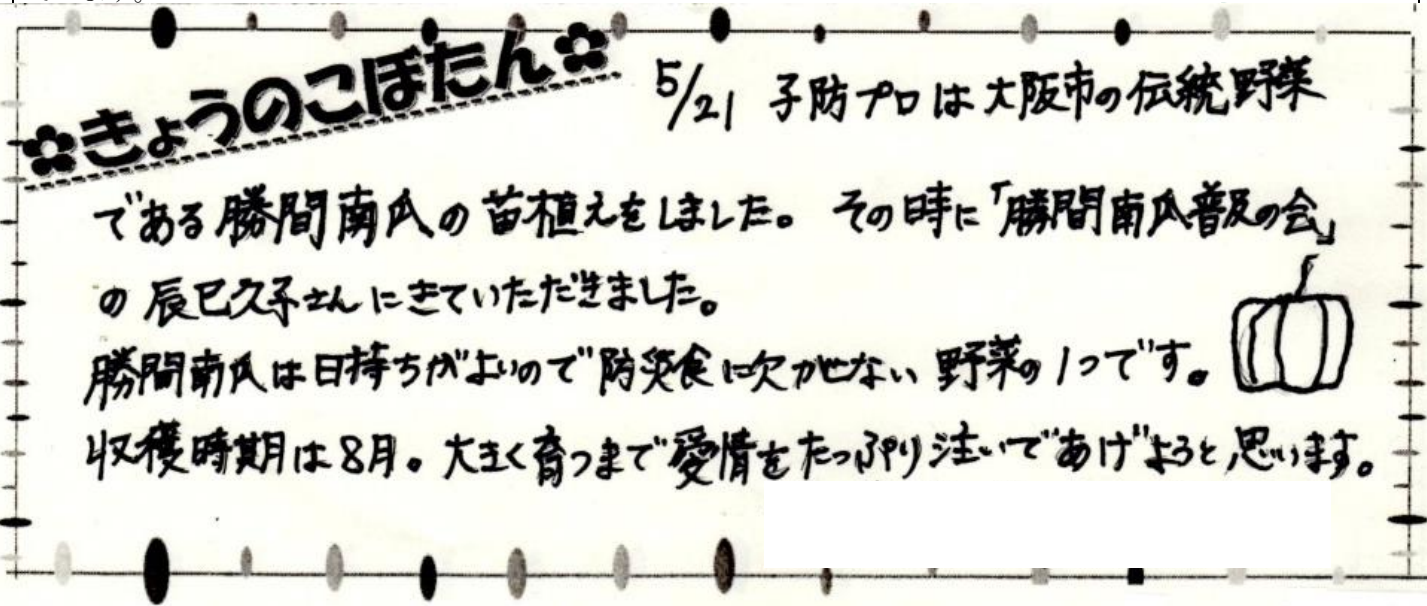 ✿きょうのこぼたん✿
5/21 予防プロは大阪市の伝統野菜
である勝間南瓜の苗植えをしました。その時に「勝間南瓜普及の会」
の辰巳久子さんにきていただきました。
勝間南瓜は日持ちがよいので防災食に欠かせない野菜の1つです。
収穫時期は8月。大きく育つまで愛情をたっぷり注いであげようと思います。